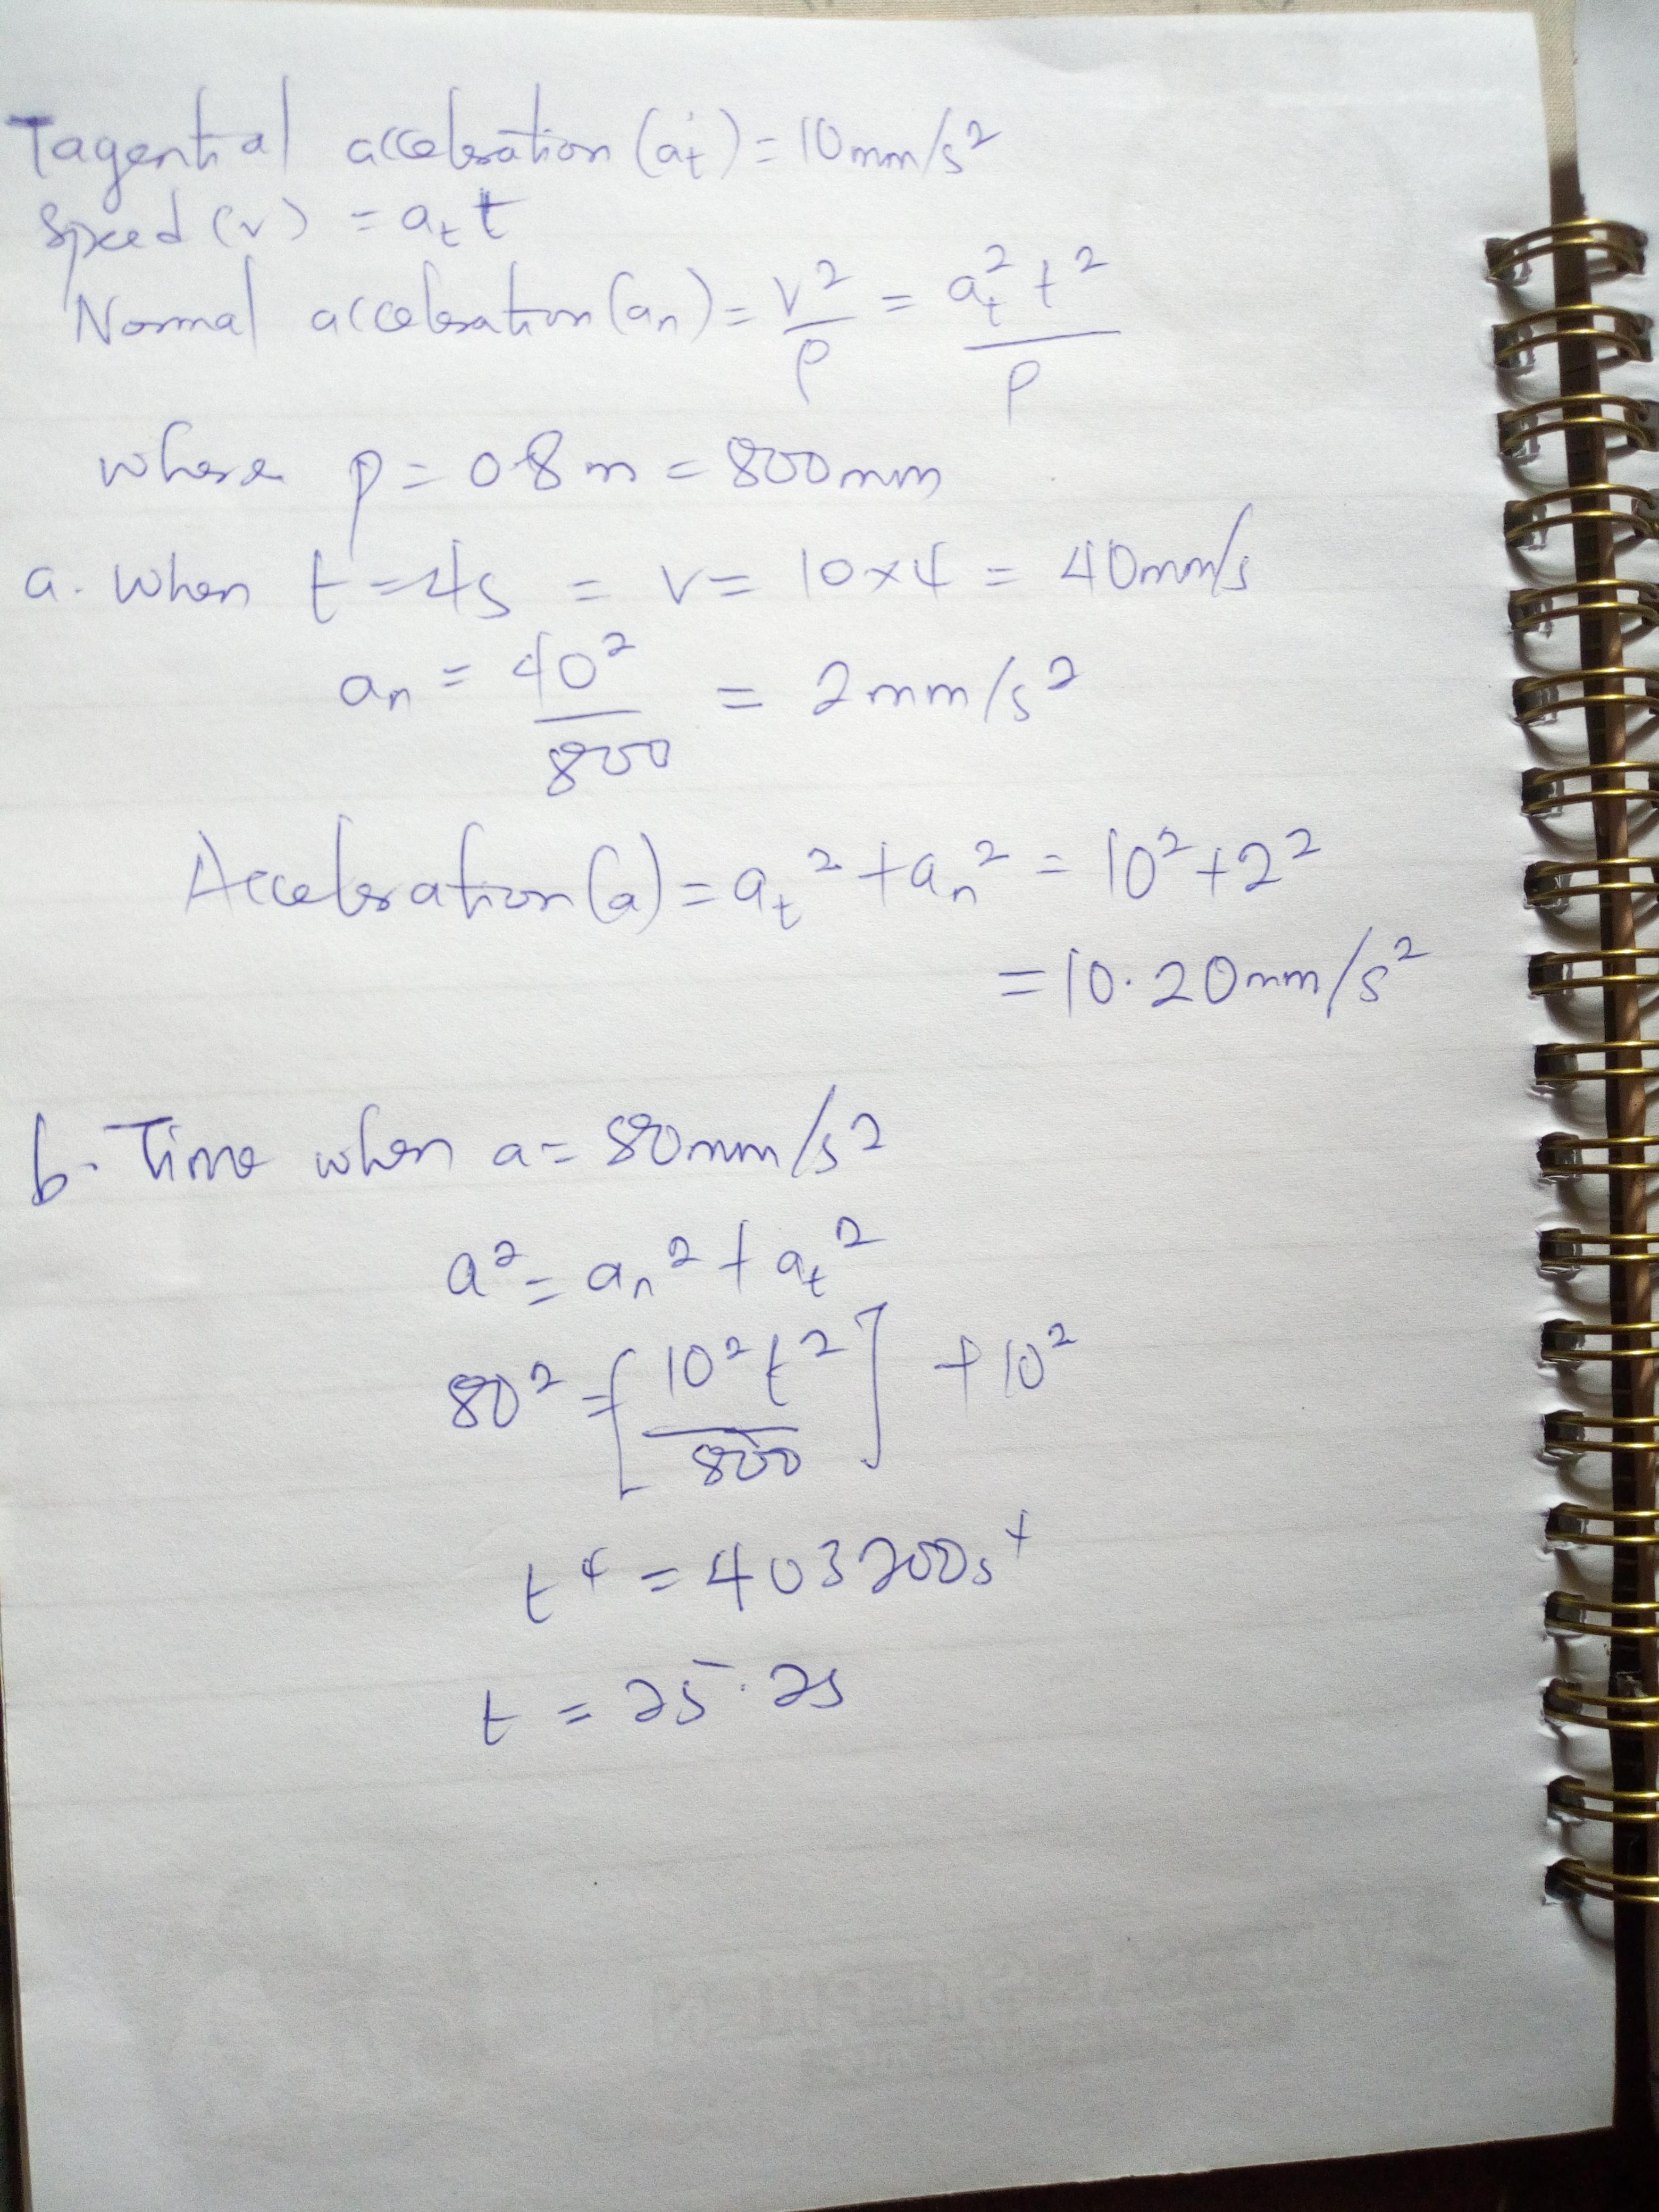 Tagential acceleration (at) = 10mm/s²
Speed (v) = at t
Normal acceleration (an) = v²/ρ = at² t²/ρ
where ρ = 0.8m = 800mm
a. When t = 4s = v = 10×4 = 40mm/s
an = 40²/800 = 2mm/s²
Acceleration (a) = at² + an² = 10² + 2²
= 10.20mm/s²
b. Time when a = 80mm/s²
a² = an² + at²
80² = [10² t²/800] + 10²
t⁴ = 403200s⁴
t = 25.2s